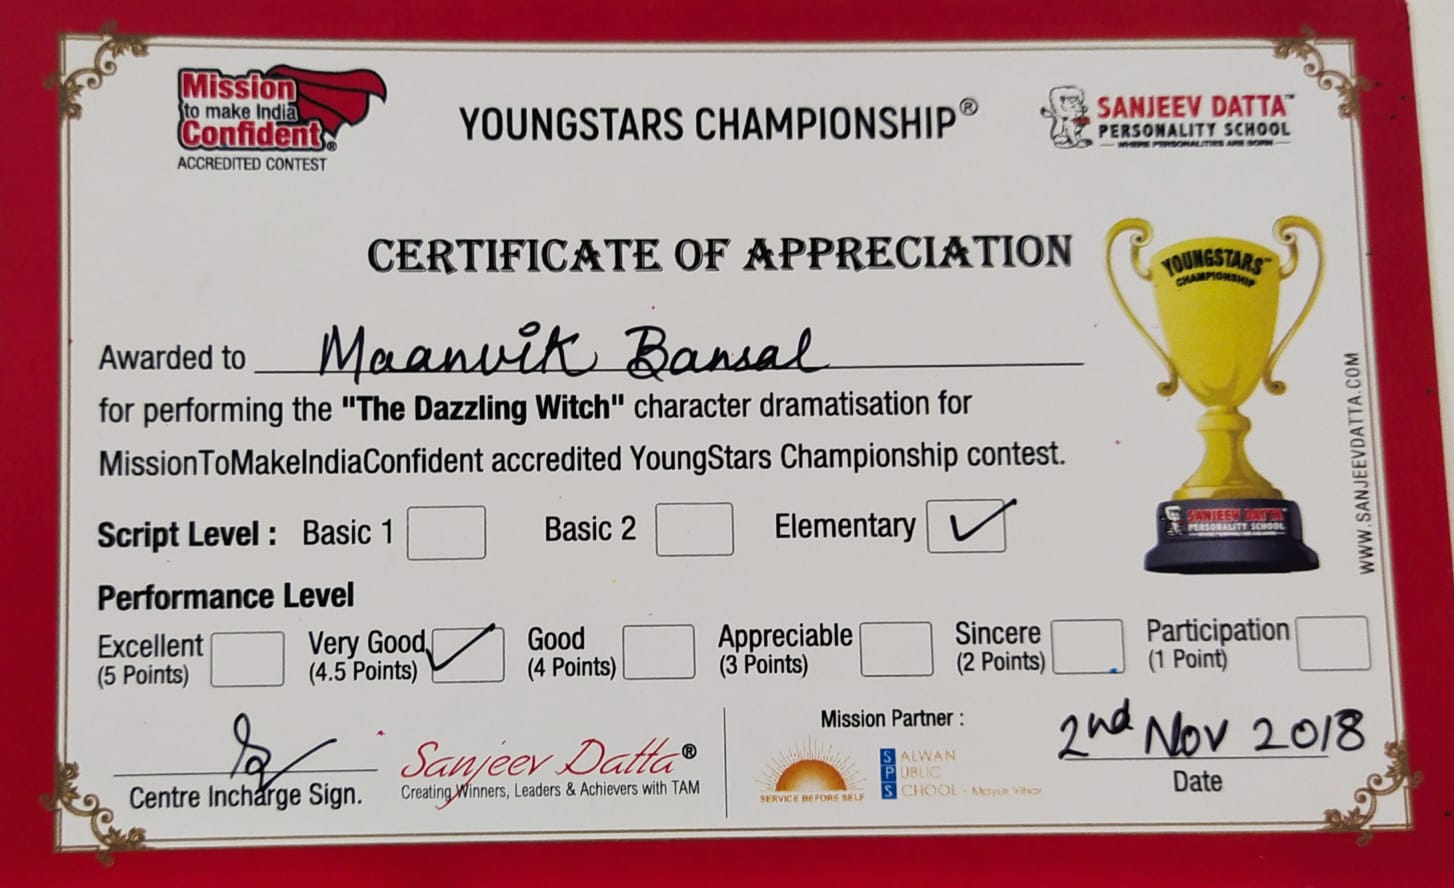 Mission
to make India
Confident®
ACCREDITED CONTEST
YOUNGSTARS CHAMPIONSHIP®
SANJEEV DATTA™
PERSONALITY SCHOOL
WHERE PERSONALITIES ARE BORN
CERTIFICATE OF APPRECIATION
YOUNGSTARS™
CHAMPIONSHIP
Awarded to Maanvik Bansal
for performing the "The Dazzling Witch" character dramatisation for
MissionToMakeIndiaConfident accredited YoungStars Championship contest.
SANJEEV DATTA
PERSONALITY SCHOOL
WWW.SANJEEVDATTA.COM
Script Level : Basic 1 Basic 2 Elementary ✓
Performance Level
Excellent (5 Points) Very Good (4.5 Points) ✓ Good (4 Points) Appreciable (3 Points) Sincere (2 Points) Participation (1 Point)
Centre Incharge Sign.
Sanjeev Datta®
Creating Winners, Leaders & Achievers with TAM
Mission Partner :
SERVICE BEFORE SELF
SALWAN
PUBLIC
SCHOOL - Mayur Vihar
2nd Nov 2018
Date